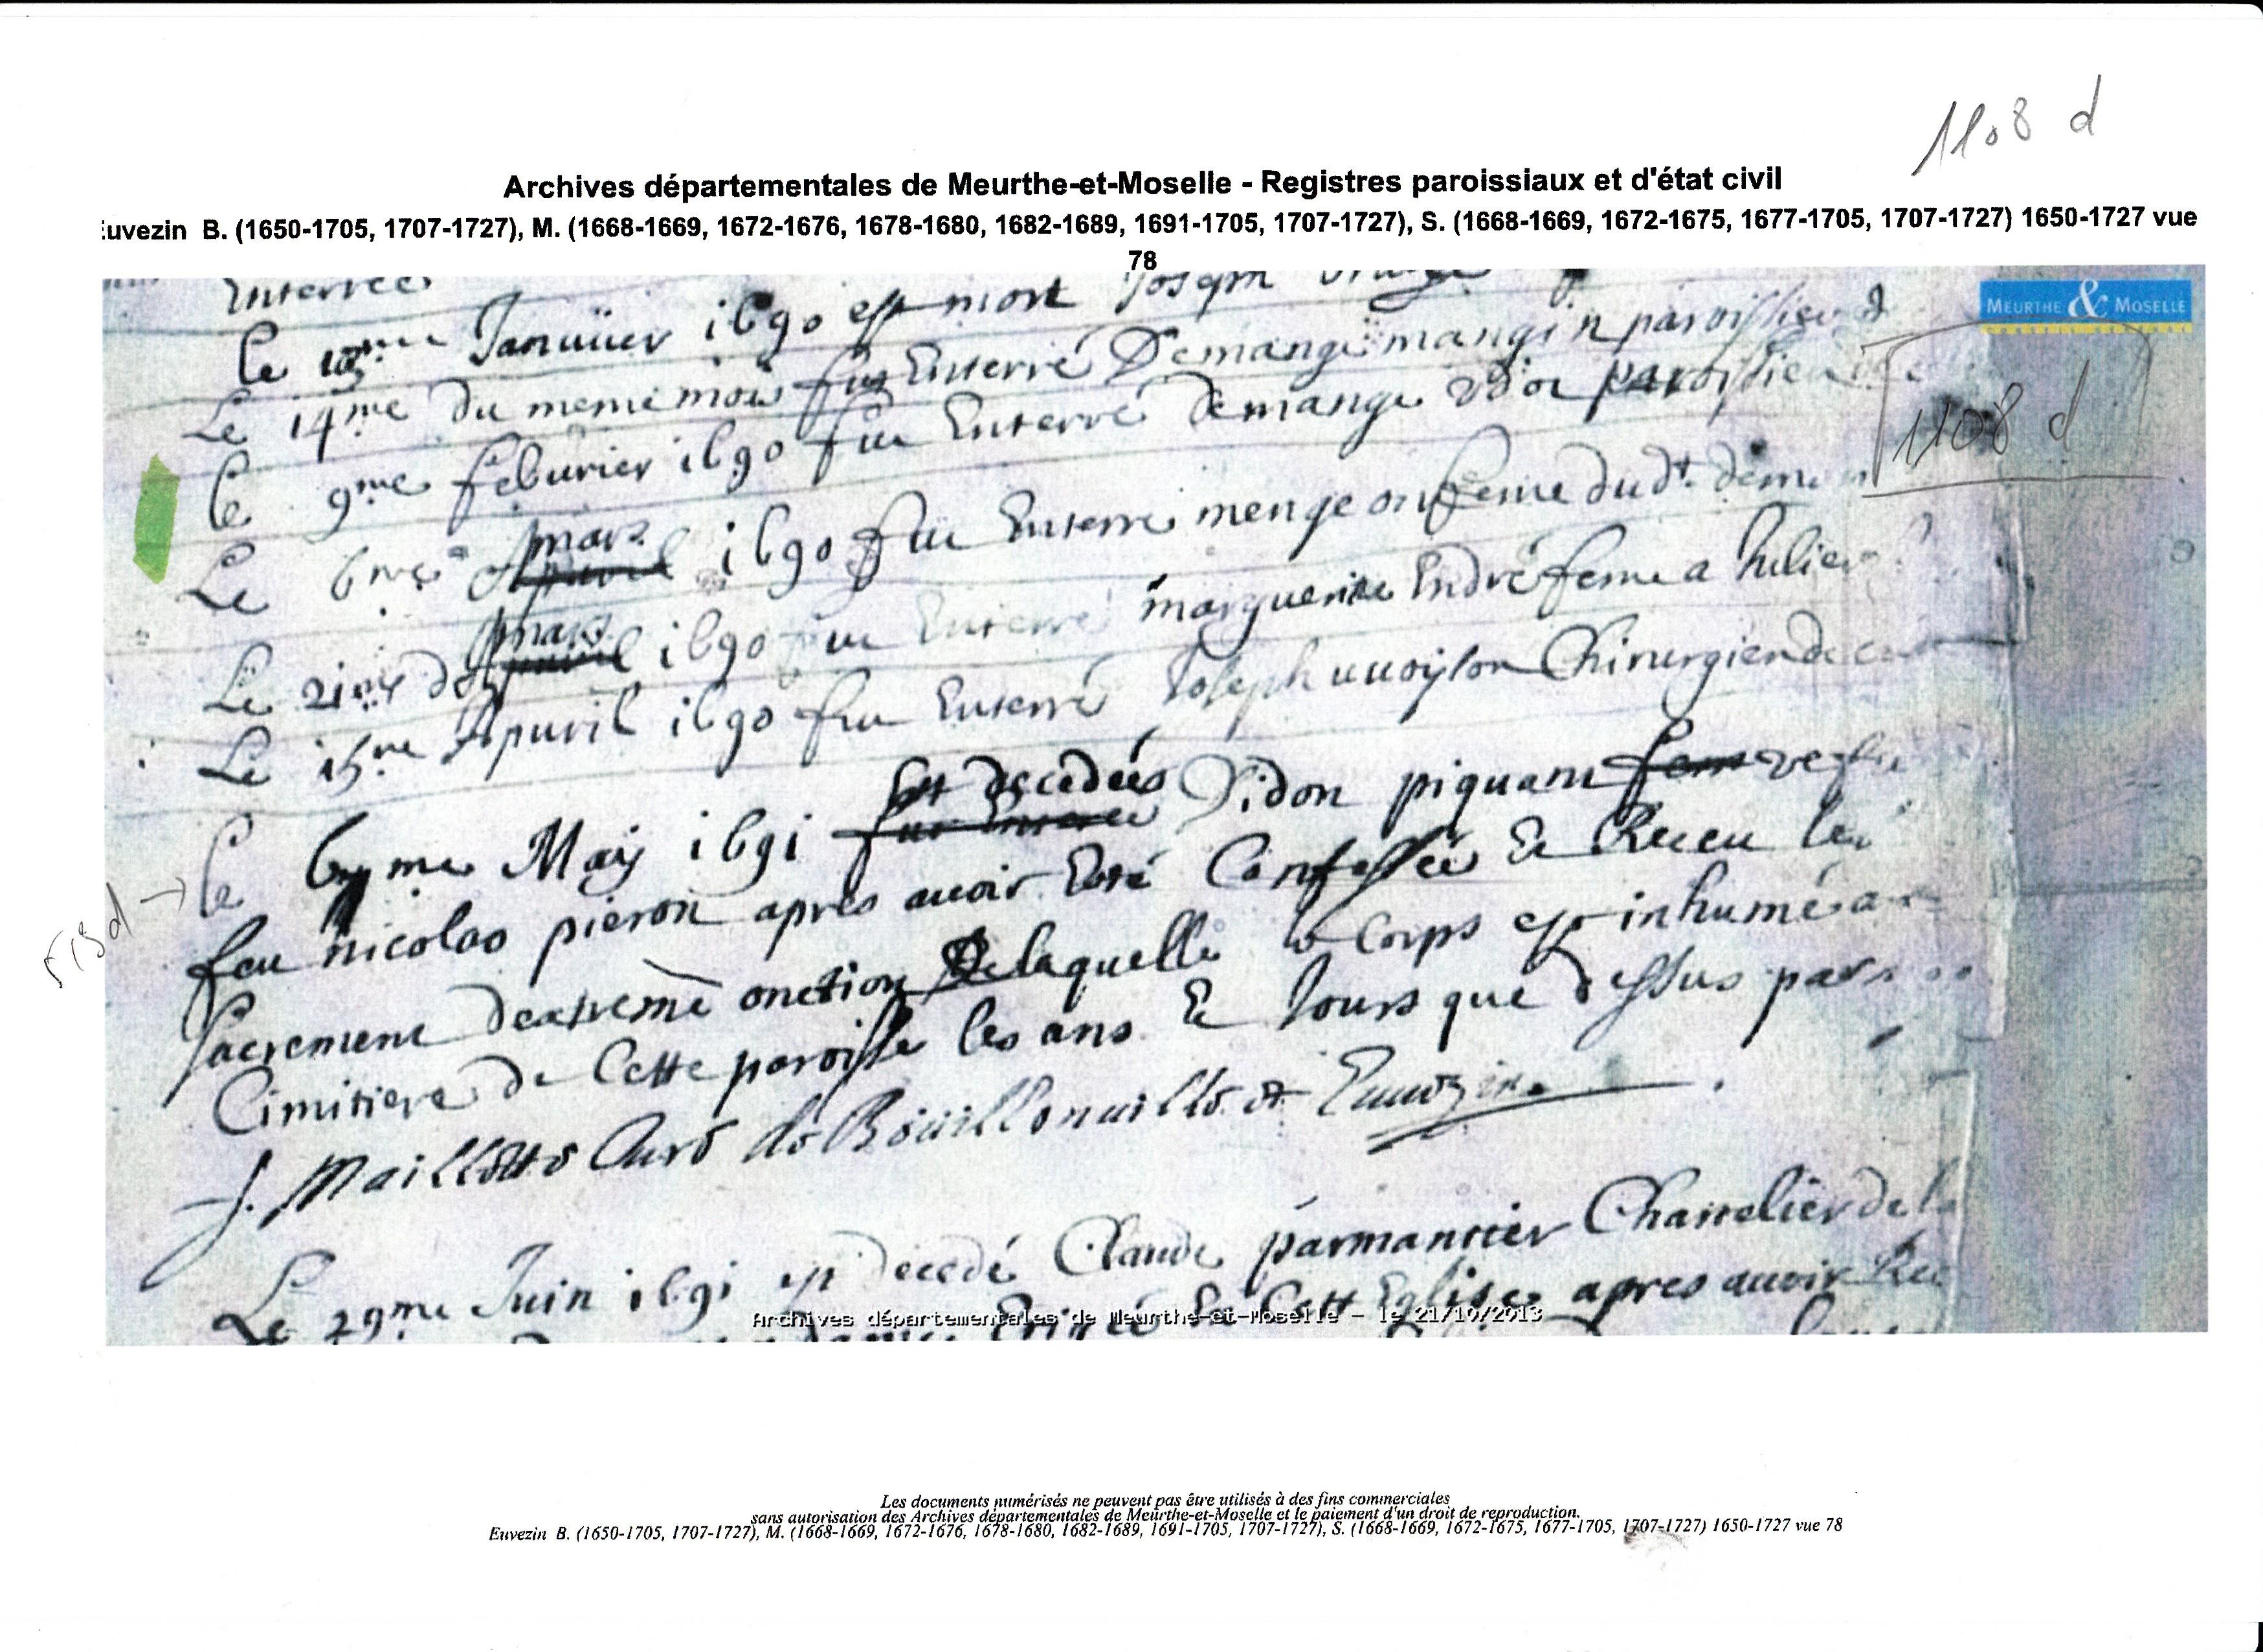 1108 d
Archives départementales de Meurthe-et-Moselle - Registres paroissiaux et d'état civil
uvezin B. (1650-1705, 1707-1727), M. (1668-1669, 1672-1676, 1678-1680, 1682-1689, 1691-1705, 1707-1727), S. (1668-1669, 1672-1675, 1677-1705, 1707-1727) 1650-1727 vue
78
MEURTHE & MOSELLE
Enterrée
Le Januiier i690 est mort Joseph
Le 14me du meme mois fut Enterré Demange mangin paroissien d
1108 d
Le 9me feburier i690 fut Enterré demange paroissien
Le 6me mars i690 fut Enterré mengeon feme dud't dem
Le 21 de mars i690 fut Enterré marguerite Endré feme a Julien
Le 15me Apuril i690 fut Enterré Joseph uuoyson Chirurgien de
Le 6me May i691 Est decedée Didon piquant
feu nicolas pieron apres auoir Esté Confessée Et Receu le
sacrement dextreme onction De laquelle le Corps est inhumé au
Cimitiere de Cette paroisse les ans Et Jours que dessus par
J. Maillotte Curé de Boüillonuille et Euuezin.
Le 29me Juin i691 est decedé Claude parmantier Chastelier de la
Cett Eglise apres auoir Rec
Archives départementales de Meurthe-et-Moselle - le 21/10/2013
Les documents numérisés ne peuvent pas être utilisés à des fins commerciales
sans autorisation des Archives départementales de Meurthe-et-Moselle et le paiement d'un droit de reproduction.
Euvezin B. (1650-1705, 1707-1727), M. (1668-1669, 1672-1676, 1678-1680, 1682-1689, 1691-1705, 1707-1727), S. (1668-1669, 1672-1675, 1677-1705, 1707-1727) 1650-1727 vue 78